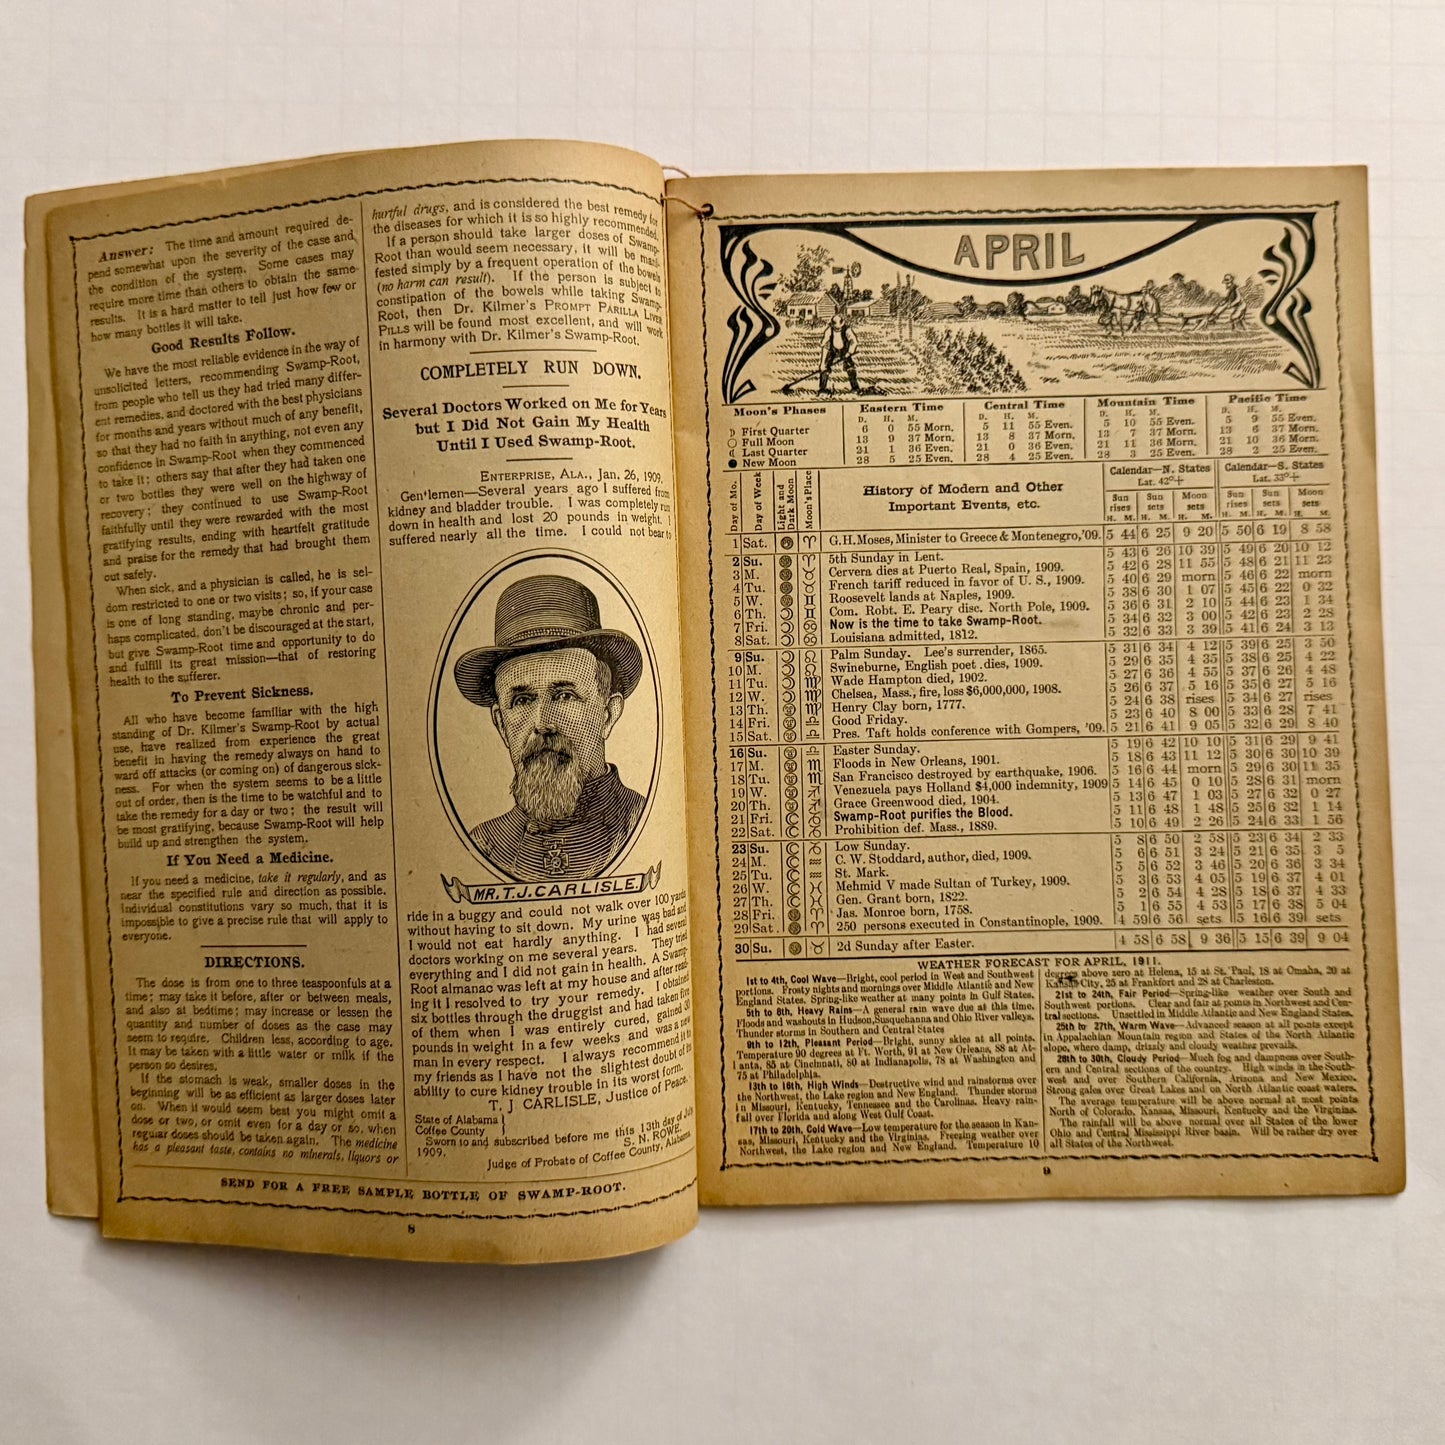 Answer: The time and amount required de-
pend somewhat upon the severity of the case and
the condition of the system. Some cases may
require more time than others to obtain the same
results. It is a hard matter to tell just how few or
how many bottles it will take.
Good Results Follow.
We have the most reliable evidence in the way of
unsolicited letters, recommending Swamp-Root,
from people who tell us they had tried many differ-
ent remedies, and doctored with the best physicians
for months and years without much of any benefit,
so that they had no faith in anything, not even any
confidence in Swamp-Root when they commenced
to take it; others say that after they had taken one
or two bottles they were well on the highway of
recovery; they continued to use Swamp-Root
faithfully until they were rewarded with the most
gratifying results, ending with heartfelt gratitude
and praise for the remedy that had brought them
out safely.
When sick, and a physician is called, he is sel-
dom restricted to one or two visits; so, if your case
is one of long standing, maybe chronic and per-
haps complicated, don't be discouraged at the start,
but give Swamp-Root time and opportunity to do
and fulfill its great mission—that of restoring
health to the sufferer.
To Prevent Sickness.
All who have become familiar with the high
standing of Dr. Kilmer's Swamp-Root by actual
use, have realized from experience the great
benefit in having the remedy always on hand to
ward off attacks (or coming on) of dangerous sick-
ness. For when the system seems to be a little
out of order, then is the time to be watchful and to
take the remedy for a day or two; the result will
be most gratifying, because Swamp-Root will help
build up and strengthen the system.
If You Need a Medicine.
If you need a medicine, take it regularly, and as
near the specified rule and direction as possible.
Individual constitutions vary so much, that it is
impossible to give a precise rule that will apply to
everyone.
DIRECTIONS.
The dose is from one to three teaspoonfuls at a
time; may take it before, after or between meals,
and also at bedtime; may increase or lessen the
quantity and number of doses as the case may
seem to require. Children less, according to age.
It may be taken with a little water or milk if the
person so desires.
If the stomach is weak, smaller doses in the
beginning will be as efficient as larger doses later
on. When it would seem best you might omit a
dose or two, or omit even for a day or so, when
regular doses should be taken again. The medicine
has a pleasant taste, contains no minerals, liquors or
hurtful drugs, and is considered the best remedy for
the diseases for which it is so highly recommended.
If a person should take larger doses of Swamp-
Root than would seem necessary, it will be mani-
fested simply by a frequent operation of the bowels
(no harm can result). If the person is subject to
constipation of the bowels while taking Swamp-
Root, then Dr. Kilmer's PROMPT PARILLA LIVER
PILLS will be found most excellent, and will work
in harmony with Dr. Kilmer's Swamp-Root.
COMPLETELY RUN DOWN.
Several Doctors Worked on Me for Years
but I Did Not Gain My Health
Until I Used Swamp-Root.
ENTERPRISE, ALA., Jan. 26, 1909.
Gentlemen—Several years ago I suffered from
kidney and bladder trouble. I was completely run
down in health and lost 20 pounds in weight. I
suffered nearly all the time. I could not bear to
MR. T. J. CARLISLE.
ride in a buggy and could not walk over 100 yards
without having to sit down. My urine was bad and
I would not eat hardly anything. I had several
doctors working on me several years. They tried
everything and I did not gain in health. A Swamp-
Root almanac was left at my house and after read-
ing it I resolved to try your remedy. I obtained
six bottles through the druggist and had taken five
of them when I was entirely cured, gained 30
pounds in weight in a few weeks and was a new
man in every respect. I always recommend it to
my friends as I have not the slightest doubt of its
ability to cure kidney trouble in its worst form.
T. J CARLISLE, Justice of Peace.
State of Alabama
Coffee County
Sworn to and subscribed before me this 13th day of July
1909.
S. N. ROWE,
Judge of Probate of Coffee County, Alabama.
SEND FOR A FREE SAMPLE BOTTLE OF SWAMP-ROOT.
8
APRIL
Moon's Phases Eastern Time Central Time Mountain Time Pacific Time
D. H. M. D. H. M. D. H. M. D. H. M.
First Quarter 6 0 55 Morn. 5 11 55 Even. 5 10 55 Even. 5 9 55 Even.
Full Moon 13 9 37 Morn. 13 8 37 Morn. 13 7 37 Morn. 13 6 37 Morn.
Last Quarter 21 1 36 Even. 21 0 36 Even. 21 11 36 Morn. 21 10 36 Morn.
New Moon 28 5 25 Even. 28 4 25 Even. 28 3 25 Even. 28 2 25 Even.
Day of Mo. Day of Week Light and Dark Moon Moon's Place
History of Modern and Other
Important Events, etc.
Calendar—N. States Lat. 42°+
Calendar—S. States Lat. 33°+
Sun rises Sun sets Moon sets Sun rises Sun sets Moon sets
H. M. H. M. H. M. H. M. H. M. H. M.
1 Sat. G. H. Moses, Minister to Greece & Montenegro, '09. 5 44 6 25 9 20 5 50 6 19 8 58
2 Su. 5th Sunday in Lent. 5 43 6 26 10 39 5 49 6 20 10 12
3 M. Cervera dies at Puerto Real, Spain, 1909. 5 42 6 28 11 55 5 48 6 21 11 23
4 Tu. French tariff reduced in favor of U. S., 1909. 5 40 6 29 morn 5 46 6 22 morn
5 W. Roosevelt lands at Naples, 1909. 5 38 6 30 1 07 5 45 6 22 0 32
6 Th. Com. Robt. E. Peary disc. North Pole, 1909. 5 36 6 31 2 10 5 44 6 23 1 34
7 Fri. Now is the time to take Swamp-Root. 5 34 6 32 3 00 5 42 6 23 2 28
8 Sat. Louisiana admitted, 1812. 5 32 6 33 3 39 5 41 6 24 3 13
9 Su. Palm Sunday. Lee's surrender, 1865. 5 31 6 34 4 12 5 39 6 25 3 50
10 M. Swineburne, English poet .dies, 1909. 5 29 6 35 4 35 5 38 6 25 4 22
11 Tu. Wade Hampton died, 1902. 5 27 6 36 4 55 5 37 6 26 4 48
12 W. Chelsea, Mass., fire, loss $6,000,000, 1908. 5 26 6 37 5 16 5 35 6 27 5 16
13 Th. Henry Clay born, 1777. 5 24 6 38 rises 5 34 6 27 rises
14 Fri. Good Friday. 5 23 6 40 8 00 5 33 6 28 7 41
15 Sat. Pres. Taft holds conference with Gompers, '09. 5 21 6 41 9 05 5 32 6 29 8 40
16 Su. Easter Sunday. 5 19 6 42 10 10 5 31 6 29 9 41
17 M. Floods in New Orleans, 1901. 5 18 6 43 11 12 5 30 6 30 10 39
18 Tu. San Francisco destroyed by earthquake, 1906. 5 16 6 44 morn 5 29 6 30 11 35
19 W. Venezuela pays Holland $4,000 indemnity, 1909 5 14 6 45 0 10 5 28 6 31 morn
20 Th. Grace Greenwood died, 1904. 5 13 6 47 1 03 5 27 6 32 0 27
21 Fri. Swamp-Root purifies the Blood. 5 11 6 48 1 48 5 25 6 32 1 14
22 Sat. Prohibition def. Mass., 1889. 5 10 6 49 2 26 5 24 6 33 1 56
23 Su. Low Sunday. 5 8 6 50 2 58 5 23 6 34 2 33
24 M. C. W. Stoddard, author, died, 1909. 5 6 6 51 3 24 5 21 6 35 3 5
25 Tu. St. Mark. 5 5 6 52 3 46 5 20 6 36 3 34
26 W. Mehmid V made Sultan of Turkey, 1909. 5 3 6 53 4 05 5 19 6 37 4 01
27 Th. Gen. Grant born, 1822. 5 2 6 54 4 28 5 18 6 37 4 33
28 Fri. Jas. Monroe born, 1758. 5 1 6 55 4 53 5 17 6 38 5 04
29 Sat. 250 persons executed in Constantinople, 1909. 4 59 6 56 sets 5 16 6 39 sets
30 Su. 2d Sunday after Easter. 4 58 6 58 9 36 5 15 6 39 9 04
WEATHER FORECAST FOR APRIL, 1911.
1st to 4th, Cool Wave—Bright, cool period in West and Southwest
portions. Frosty nights and mornings over Middle Atlantic and New
England States. Spring-like weather at many points in Gulf States.
5th to 8th, Heavy Rains—A general rain wave due at this time.
Floods and washouts in Hudson, Susquehanna and Ohio River valleys.
Thunder storms in Southern and Central States
9th to 12th, Pleasant Period—Bright, sunny skies at all points.
Temperature 90 degrees at Ft. Worth, 91 at New Orleans, 88 at At-
lanta, 85 at Cincinnati, 80 at Indianapolis, 78 at Washington and
75 at Philadelphia.
13th to 16th, High Winds—Destructive wind and rainstorms over
the Northwest, the Lake region and New England. Thunder storms
in Missouri, Kentucky, Tennessee and the Carolinas. Heavy rain-
fall over Florida and along West Gulf Coast.
17th to 20th, Cold Wave—Low temperature for the season in Kan-
sas, Missouri, Kentucky and the Virginias. Freezing weather over
Northwest, the Lake region and New England. Temperature 10
degrees above zero at Helena, 15 at St. Paul, 18 at Omaha, 20 at
Kansas City, 25 at Frankfort and 28 at Charleston.
21st to 24th, Fair Period—Spring-like weather over South and
Southwest portions. Clear and fair at points in Northwest and Cen-
tral sections. Unsettled in Middle Atlantic and New England States.
25th to 27th, Warm Wave—Advanced season at all points except
in Appalachian Mountain region and States of the North Atlantic
slope, where damp, drizzly and cloudy weather prevails.
28th to 30th, Cloudy Period—Much fog and dampness over South-
ern and Central sections of the country. High winds in the South-
west and over Southern California, Arizona and New Mexico.
Strong gales over Great Lakes and on North Atlantic coast waters.
The average temperature will be above normal at most points
North of Colorado, Kansas, Missouri, Kentucky and the Virginias.
The rainfall will be above normal over all States of the lower
Ohio and Central Mississippi River basin. Will be rather dry over
all States of the Northwest.
9